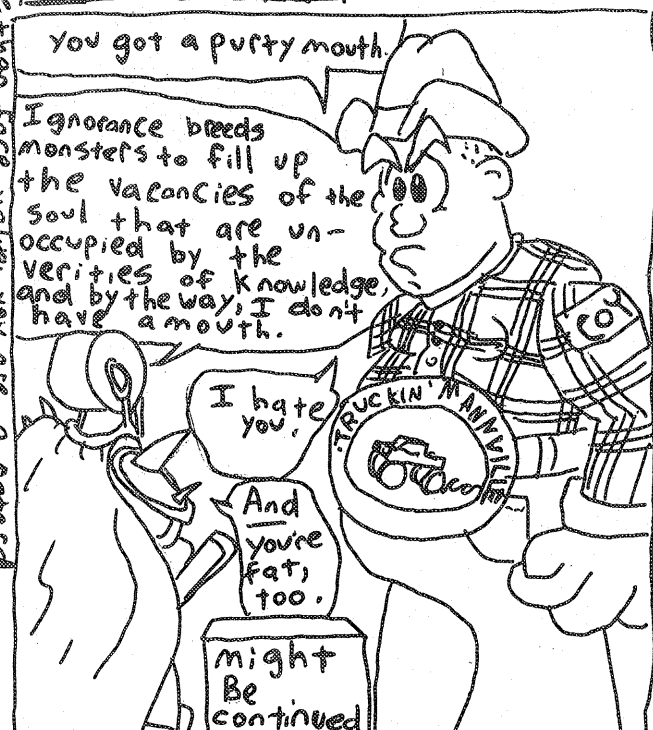 You got a purty mouth.
Ignorance breeds
monsters to fill up
the vacancies of the
soul that are un-
occupied by the
verities of knowledge,
and by the way, I don't
have a mouth.
I hate
you.
And
you're
fat,
too.
TRUCKIN' MANNVILLE
might
Be
continued